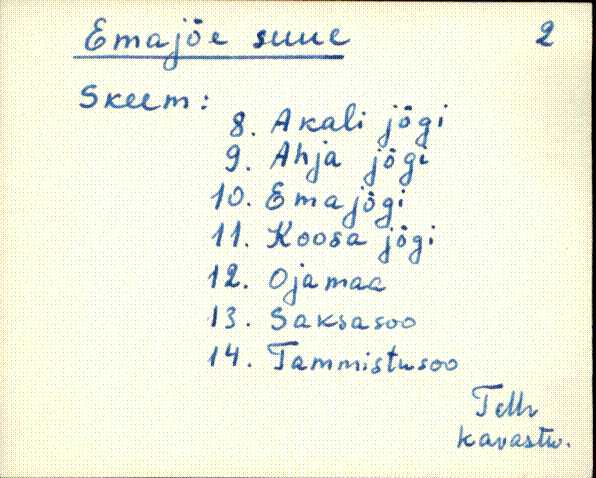 Emajõe suue 2
Skeem:
8. Akali jõgi
9. Ahja jõgi
10. Emajõgi
11. Koosa jõgi
12. Ojamaa
13. Saksasoo
14. Tammistusoo
Kavastu.